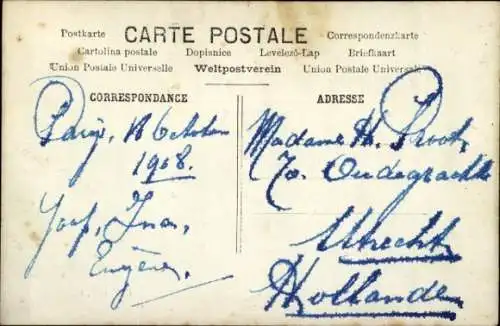 Postkarte CARTE POSTALE Correspondenzkarte
Cartolina postale Dopisnice Levelező-Lap Briefkaart
Union Postale Universelle Weltpostverein Union Postale Universale
CORRESPONDANCE
Parijs, 18 October
1908.
Joop, Ina,
Eugène.
ADRESSE
Madame H. Proot,
70. Oudegracht
Utrecht
Hollande